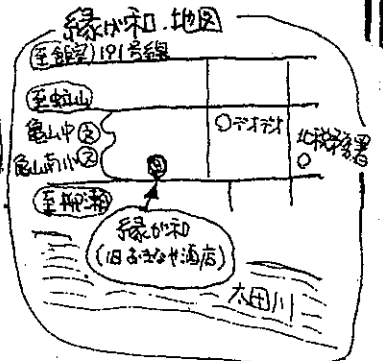 縁が和.地図
至飯室)191号線
至虹山
亀山中文
亀山南小文
○デオデオ
北税務署
至柳瀬
縁が和
(旧おきなや酒店)
太田川